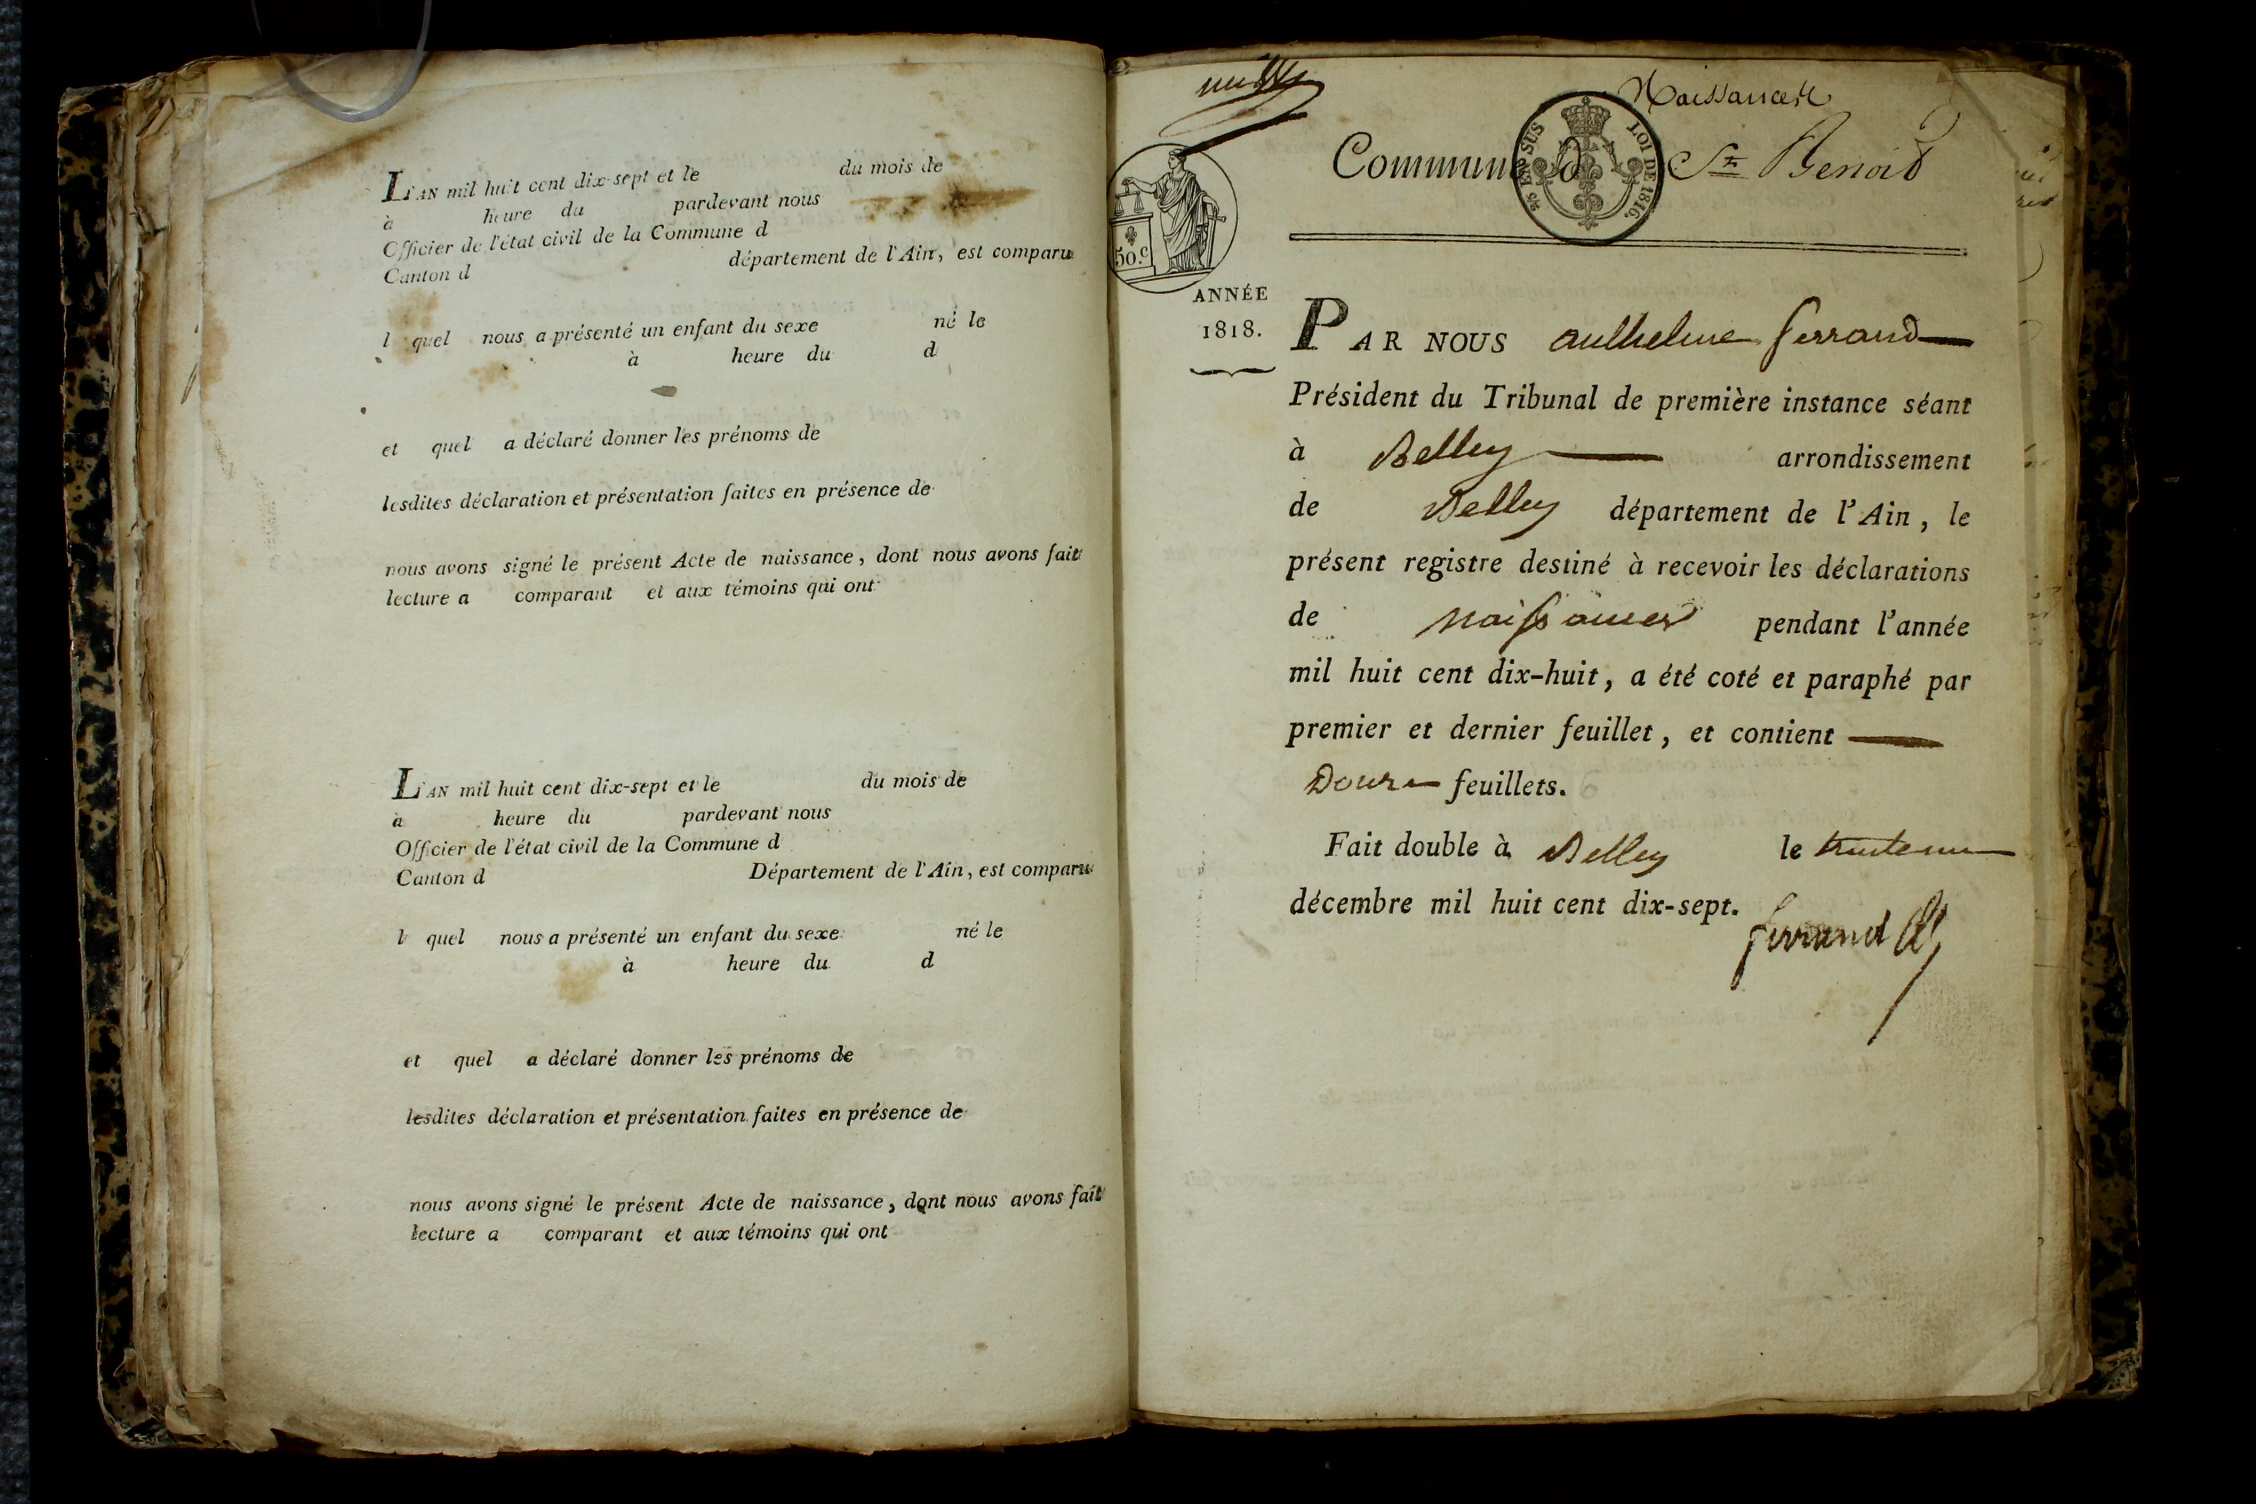 L'AN mil huit cent dix-sept et le du mois de
à heure du pardevant nous
Officier de l'état civil de la Commune d
Canton d département de l'Ain, est comparu
l quel nous a présenté un enfant du sexe né le
à heure du d
et quel a déclaré donner les prénoms de
lesdites déclaration et présentation faites en présence de
nous avons signé le présent Acte de naissance, dont nous avons fait
lecture a comparant et aux témoins qui ont
L'AN mil huit cent dix-sept et le du mois de
à heure du pardevant nous
Officier de l'état civil de la Commune d
Canton d Département de l'Ain, est comparu
l quel nous a présenté un enfant du sexe né le
à heure du d
et quel a déclaré donner les prénoms de
lesdites déclaration et présentation faites en présence de
nous avons signé le présent Acte de naissance, dont nous avons fait
lecture a comparant et aux témoins qui ont
Naissances
Commune d St Benoid
EN SUS LOI DE 1816.
50.c
ANNÉE
1818.
PAR NOUS anthelme ferrand
Président du Tribunal de première instance séant
à Belley arrondissement
de Belley département de l'Ain, le
présent registre destiné à recevoir les déclarations
de naissances pendant l'année
mil huit cent dix-huit, a été coté et paraphé par
premier et dernier feuillet, et contient
Douze feuillets.
Fait double à Belley le trente un
décembre mil huit cent dix-sept.
ferrand